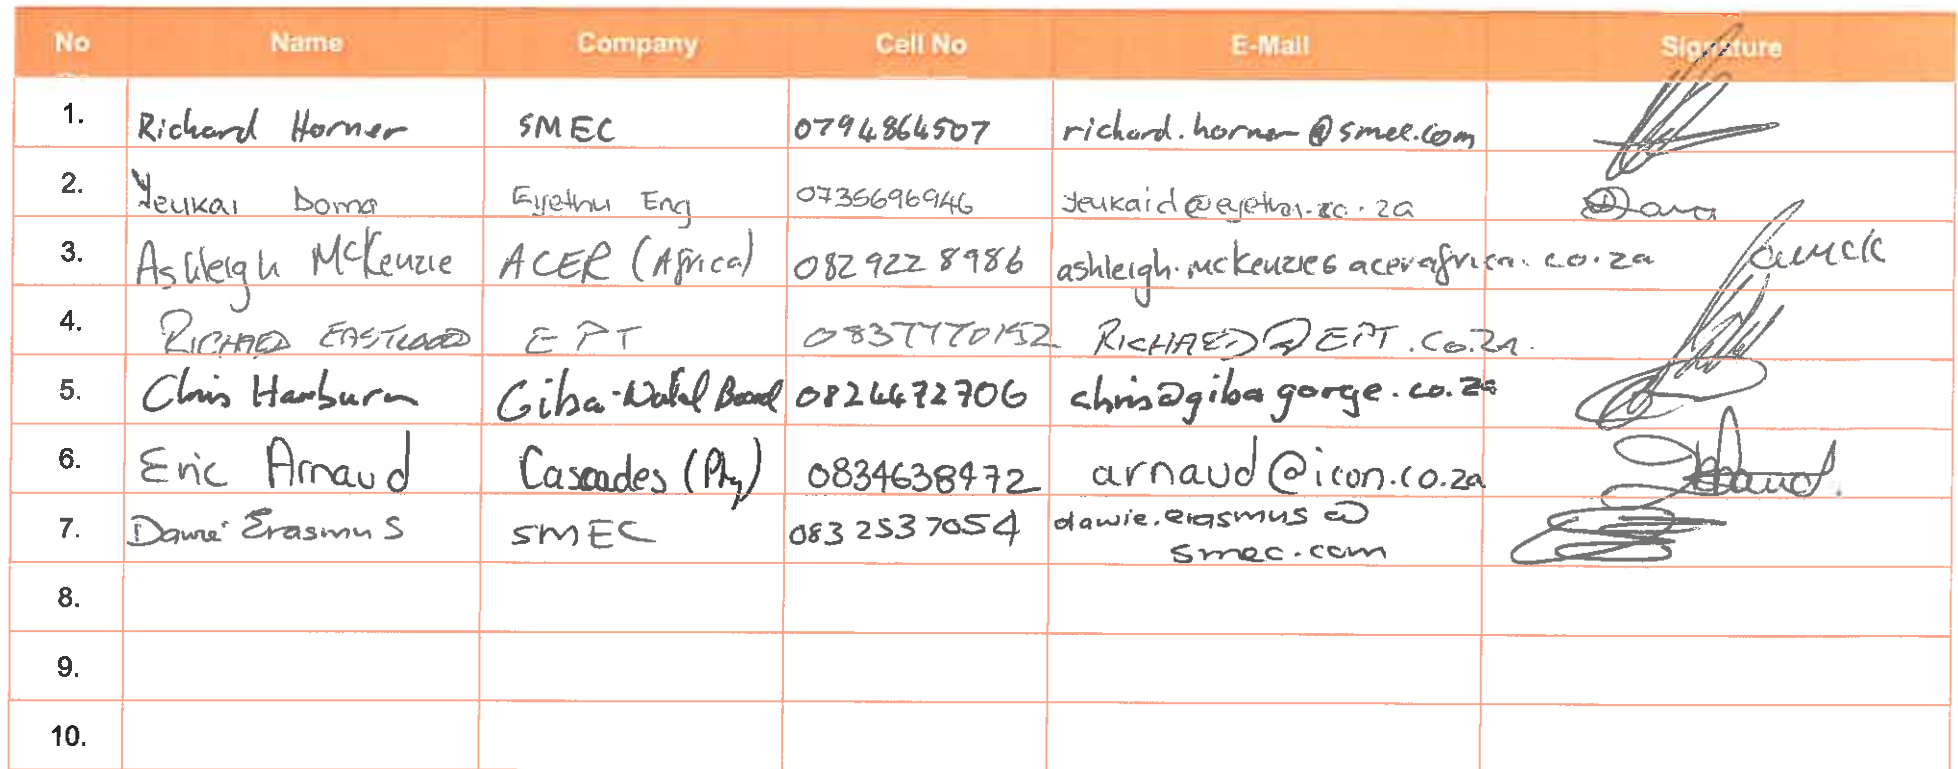 No Name Company Cell No E-Mail Signature
1. Richard Horner SMEC 0794864507 richard.horner@smec.com
2. Yeukai Doma Eyethu Eng 0735696946 yeukaid@eyethu.co.za
3. Ashleigh McKenzie ACER (Africa) 082 922 8986 ashleigh.mckenzie@acerafrica.co.za
4. RICHARD EASTWOOD EPT 0837770152 RICHARD@EPT.CO.ZA.
5. Chris Hanburn Giba-Natal Board 0824472706 chris@gibagorge.co.za
6. Eric Arnaud Cascades (Pty) 0834638472 arnaud@icon.co.za
7. Dawie Erasmus SMEC 083 2537054 dawie.erasmus@
smec.com
8.
9.
10.